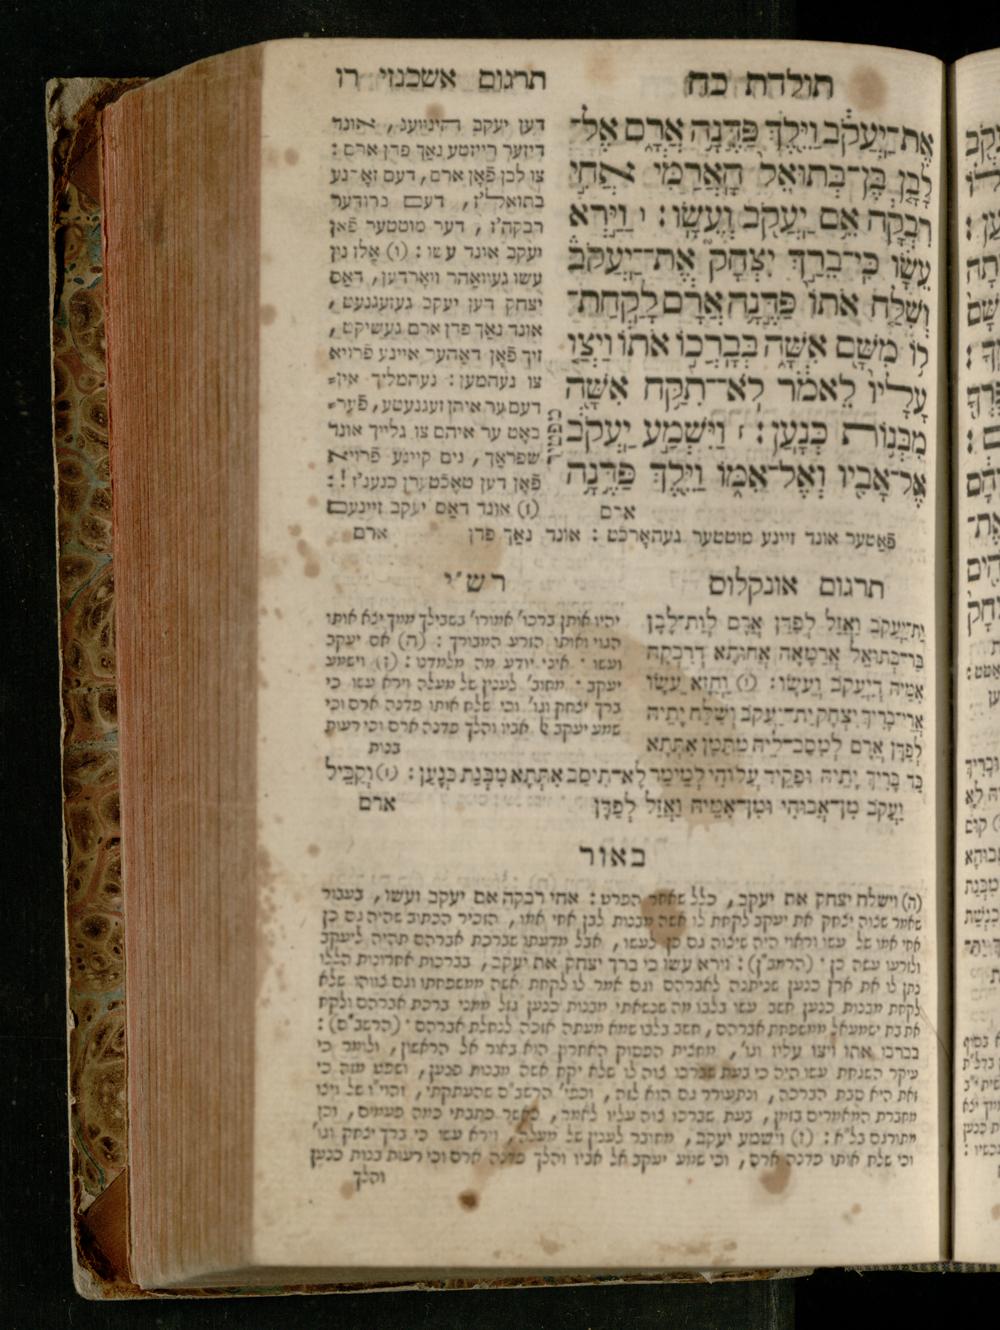 תולדת כח
תרגום אשכנזי רו
אֶת־יַעֲקֹב וַיֵּלֶךְ פַּדֶּנָה אֲרָם אֶל־
לָבָן בֶּן־בְּתוּאֵל הָאֲרַמִּי אֲחִי
רִבְקָה אֵם יַעֲקֹב וְעֵשָׂו׃ ו וַיַּרְא
עֵשָׂו כִּי־בֵרַךְ יִצְחָק אֶת־יַעֲקֹב
וְשִׁלַּח אֹתוֹ פַּדֶּנָה אֲרָם לָקַחַת־
לוֹ מִשָּׁם אִשָּׁה בְּבָרְכוֹ אֹתוֹ וַיְצַו
עָלָיו לֵאמֹר לֹא־תִקַּח אִשָּׁה
מִבְּנוֹת כְּנָעַן׃ ז וַיִּשְׁמַע יַעֲקֹב
מפטיר
אֶל־אָבִיו וְאֶל־אִמּוֹ וַיֵּלֶךְ פַּדֶּנָה
ארם
דען יעקב הינוועג, אונד
דיזער רייזטע נאך פדן ארם :
צו לבן פֿאן ארם, דעם זאהנע
בתואל'ז, דעם ברודער
רבקה'ז, דער מוטטער פֿאן
יעקב אונד עשו : (ו) אלז נון
עשו געוואהר ווארדען, דאס
יצחק דען יעקב געזעגנעט,
אונד נאך פדן ארם געשיקט,
זיך פֿאן דאהער איינע פֿרויא
צו נעהמען : נעהמליך אין־
דעם ער איהן זעגנעטע, פֿער־
באט ער איהם צו גלייך אונד
שפראך, נים קיינע פֿרויא
פֿאן דען טאכטערן כנען'ז !:
(ז) אונד דאס יעקב זיינעם
פֿאטער אונד זיינע מוטטער געהארכט : אונד נאך פדן
ארם
תרגום אונקלוס
יָת־יַעֲקֹב וַאֲזַל לְפַדַּן אֲרָם לְוָת־לָבָן
בַּר־בְּתוּאֵל אֲרַמָּאָה אֲחוּהָא דְרִבְקָה
אִמֵּיהּ דְיַעֲקֹב וְעֵשָׂו׃ (ו) וַחֲזָא עֵשָׂו
אֲרֵי־בָרִיךְ יִצְחָק יָת־יַעֲקֹב וְשַׁלַּח יָתֵיהּ
לְפַדַּן אֲרָם לְמִסַּב־לֵיהּ מִתַּמָּן אִתְּתָא
כַּד בָּרִיךְ יָתֵיהּ וּפַקֵּיד עֲלוֹהִי לְמֵימַר לָא־תִיסַּב אִתְּתָא מִבְּנַת כְּנָעַן׃ (ז) וְקַבֵּיל
יַעֲקֹב מִן־אֲבוּהִי וּמִן־אִמֵּיהּ וַאֲזַל לְפַדַּן
ארם
רש״י
יהיו אותן ברכו' אמורו' בשבילך ממך יצא אותו
הגוי ואותו הזרע המבורך : (ה) אם יעקב
ועשו · איני יודע מה מלמדנו : (ז) וישמע
יעקב · מחוב' לענין של מעלה וירא עשו כי
ברך יצחק וגו' וכי שלח אותו פדנה ארם וכי
שמע יעקב אל אביו והלך פדנה ארם וכי רעות
בנות
באור
(ה) וישלח יצחק את יעקב, כלל שאחר הפרט : אחי רבקה אם יעקב ועשו, בעבור
שאמר שצוה יצחק את יעקב לקחת לו אשה מבנות לבן אחי אמו, הזכיר הכתוב שהיה גם כן
אחי אמו של עשו וראוי היה שיצוה גם כן לעשו, אבל מדעתו שברכת אברהם תהיה ליעקב
ולזרעו עשה כן · (הרמב"ן) : וירא עשו כי ברך יצחק את יעקב, בברכות אחרונות הללו
נתן לו את ארץ כנען שניתנה לאברהם וגם אמר לו לקחת אשה ממשפחתו וגם צווהו שלא
לקחת מבנות כנען חשב עשו בלבו מה שנשאתי מבנות כנען גזל ממני ברכת אברהם ולקח
את בת ישמעאל ממשפחת אברהם, חשב בלבו שמא מעתה אזכה לנחלת אברהם · (הרשב"ם) :
בברכו אתו ויצו עליו וגו', מחצית הפסוק האחרון הוא באור אל הראשון, ולומר כי
עיקר השגחת עשו היה כי בעת שברכו צוה לו שלא יקח אשה מבנות כנען, ושפט מזה כי
זאת היא סבת הברכה, ונתעורר גם הוא לזה, וכפי' הרשב"ם שהעתקתי, והוי"ו של ויצו
מחברת המאמרים בזמן, בעת שברכו צוה עליו לאמר, כאשר כתבתי כמה פעמים, וכן
מתורגם בל"א : (ז) וישמע יעקב, מחובר לענין של מעלה, וירא עשו כי ברך יצחק וגו'
וכי שלח אותו פדנה ארם, וכי שמע יעקב אל אביו והלך פדנה ארם וכי רעות בנות כנען
והלך